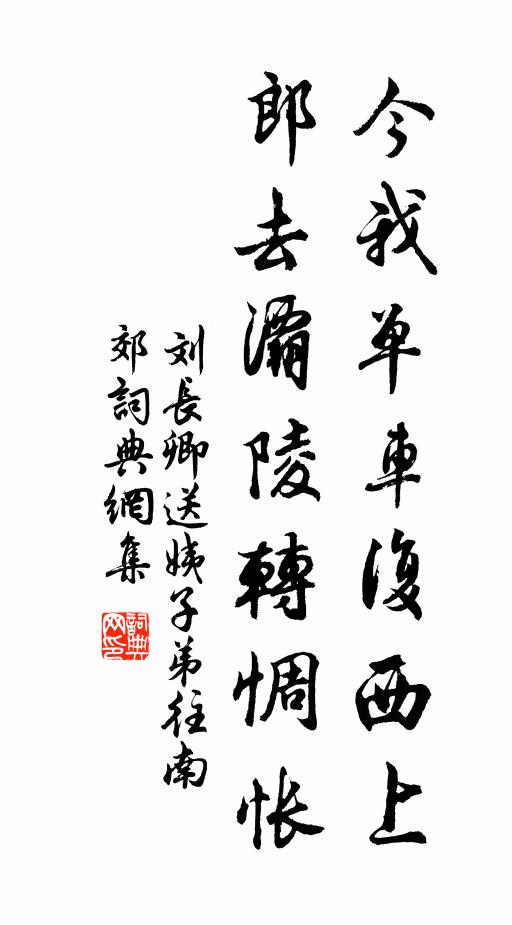 今我单車復西上
郎去灞陵轉惆怅
刘長卿送姨子弟往南
郊詞典網集
詞典
网印